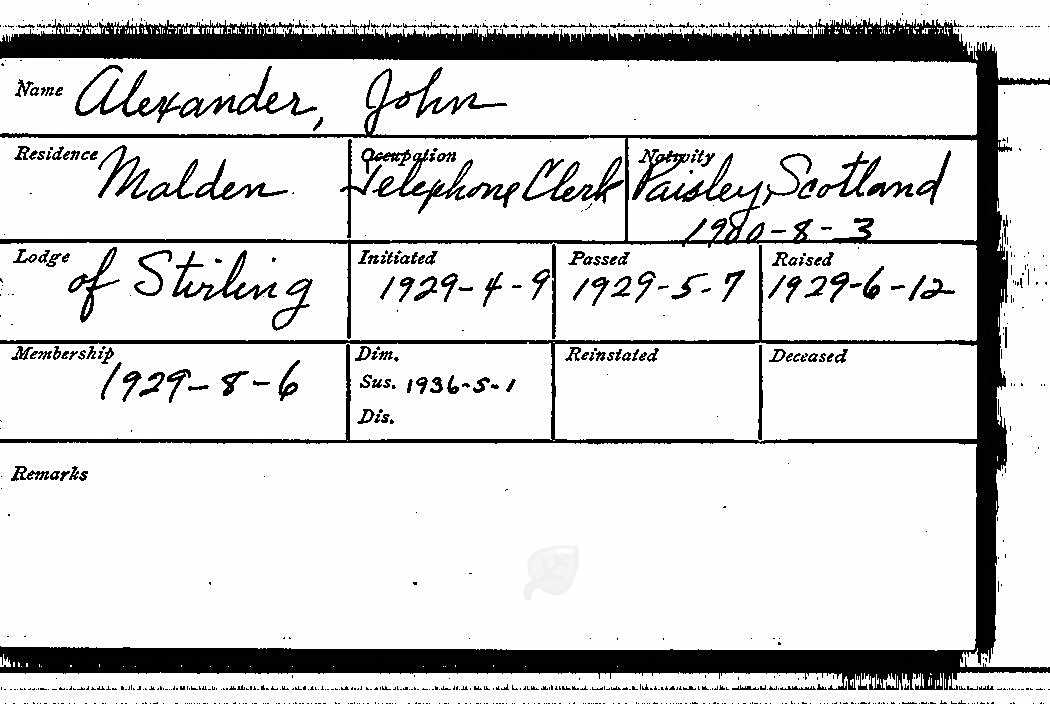 Name Alexander, John
Residence Malden Occupation Telephone Clerk Nativity Paisley, Scotland
1900-8-3
Lodge of Stirling Initiated 1929-4-9 Passed 1929-5-7 Raised 1929-6-12
Membership 1929-8-6 Dim. Reinstated Deceased
Sus. 1936-5-1
Dis.
Remarks